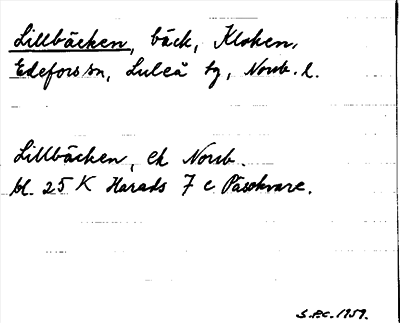 Lillbäcken, bäck, Kloken,
Edefors sn, Luleå tg, Norrb. l.
Lillbäcken, ek Norrb.
bl. 25 K Harads 7 c Påsokvare.
S.P.C. 1959.